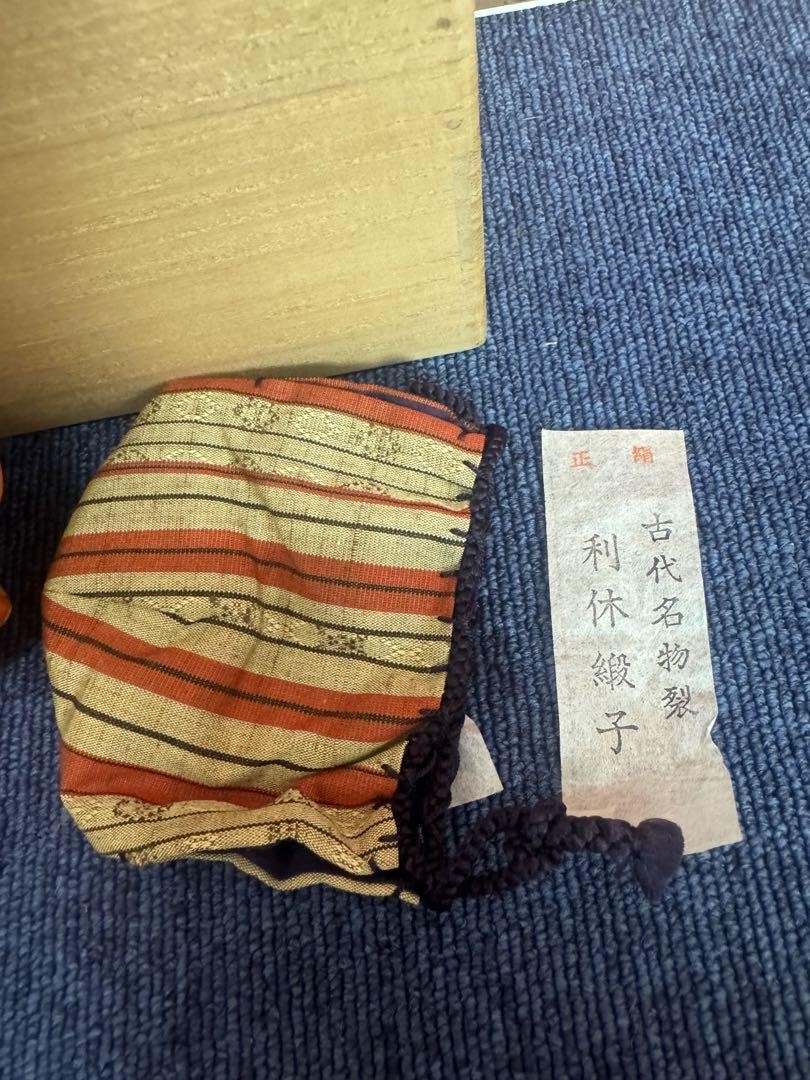 正絹
古代名物裂
利休緞子